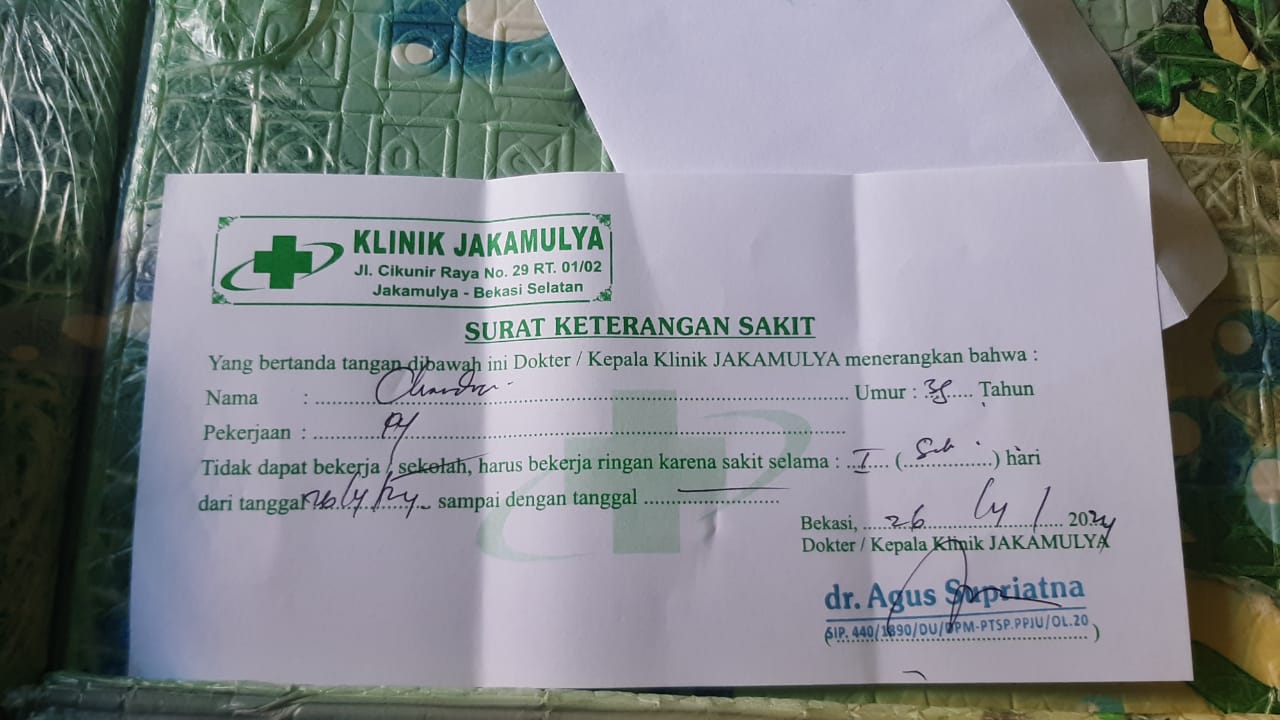 KLINIK JAKAMULYA
Jl. Cikunir Raya No. 29 RT. 01/02
Jakamulya - Bekasi Selatan
SURAT KETERANGAN SAKIT
Yang bertanda tangan dibawah ini Dokter / Kepala Klinik JAKAMULYA menerangkan bahwa :
Nama : Umur : Tahun
Pekerjaan :
Tidak dapat bekerja / sekolah, harus bekerja ringan karena sakit selama : I () hari
dari tanggal sampai dengan tanggal
Bekasi, 26 2024
Dokter / Kepala Klinik JAKAMULYA
dr. Agus Supriatna
SIP. 440/1890/DU/DPM-PTSP.PPJU/OL.20